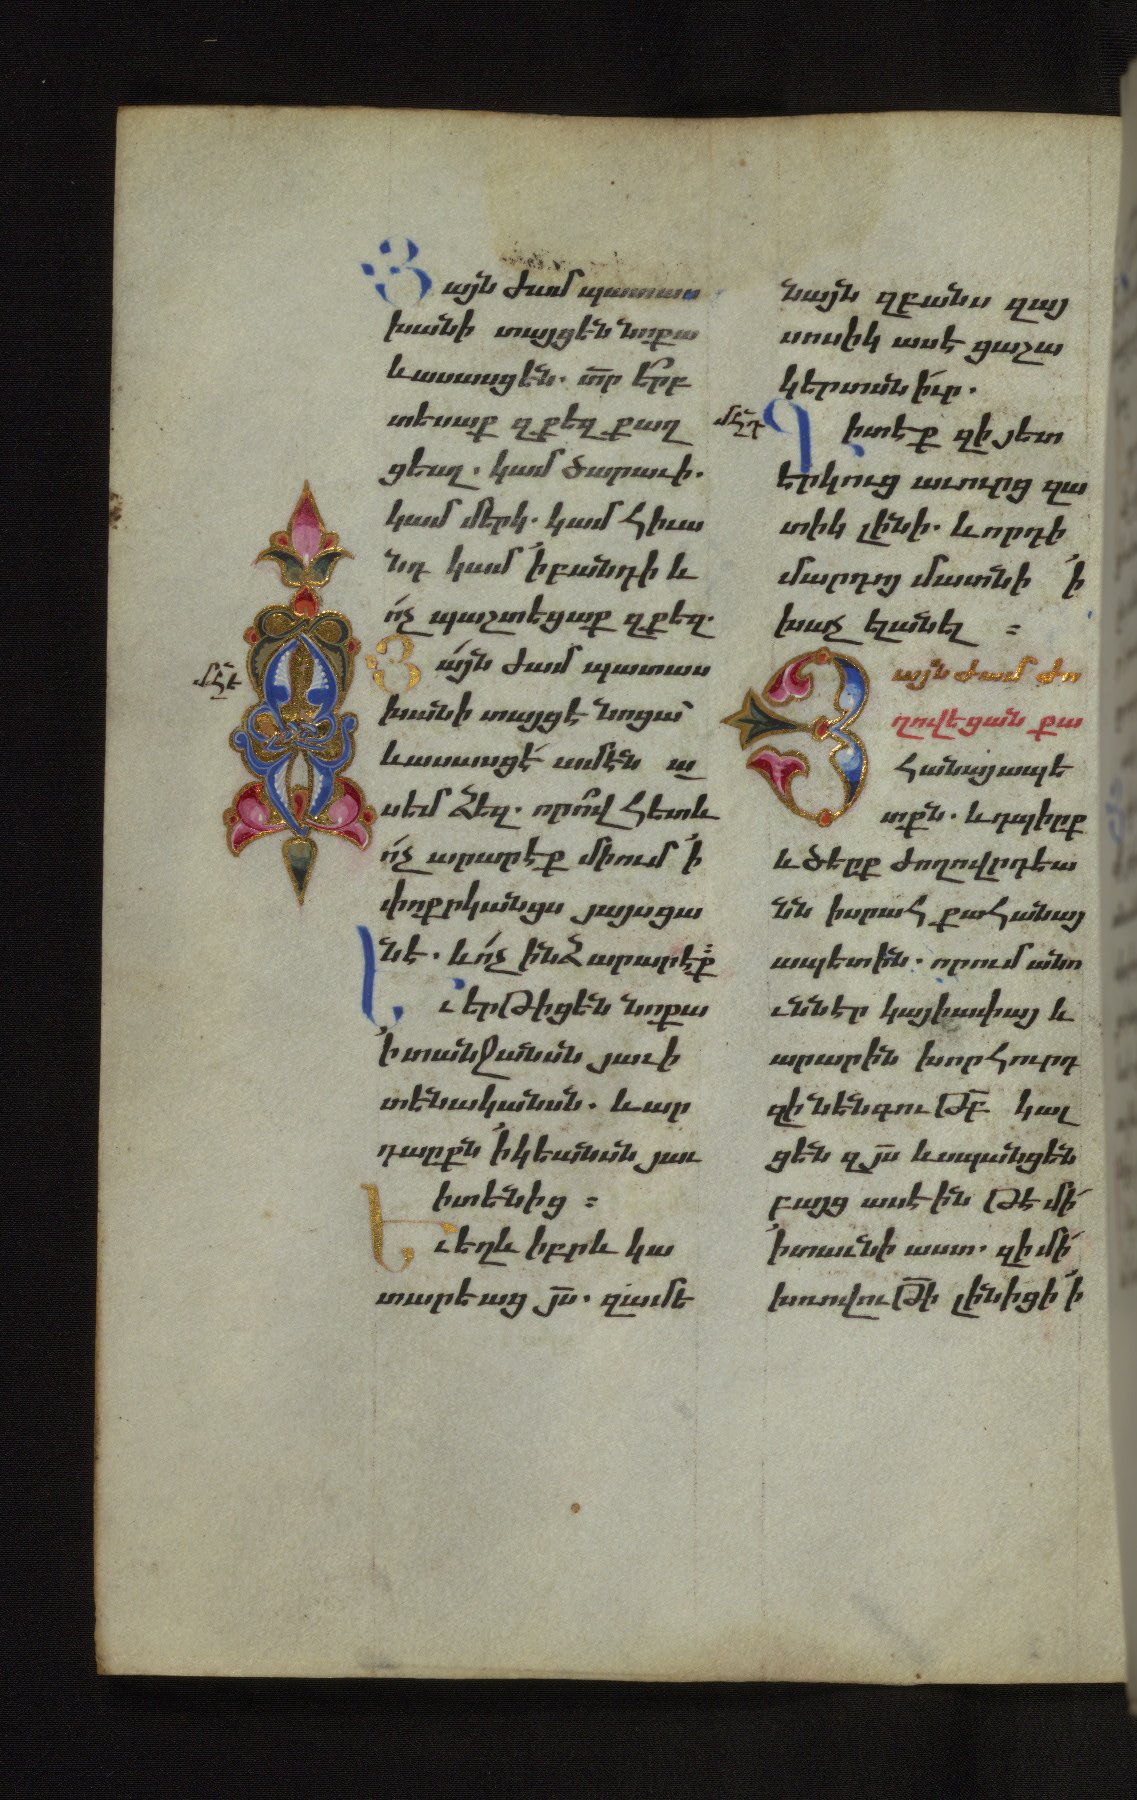 Յայն ժամ պատաս
խանի տայցեն նոքա
և ասասցեն. տր երբ
տեսաք զքեզ քաղ
ցեալ. կամ ծարաւի.
կամ մերկ. կամ հիւա
նդ կամ ի բանդի և
ոչ պաշտեցաք զքեզ.
Յայն ժամ պատաս
խանի տայցէ նոցա
և ասասցէ ամէն ա
սեմ ձեզ. որով հետև
ոչ արարէք միում ի
փոքրկանցս յայսցա
նէ. և ոչ ինձ արարէք
Եւ երթիցեն նոքա
ի տանջանսն յաւի
տենականսն. և ար
դարքն ի կեանսն յաւ
իտենից :
Եւ եղև իբրև կա
տարեաց յս. զամե
նայն զբանս զայ
սոսիկ ասէ ցաշա
կերտսն իւր.
մհդ
Գիտէք զի յետ
երկուց աւուրց զա
տիկ լինի. և որդի
մարդոյ մատնի ի
խաչ ելանել :
մհե
Յայն ժամ ժո
ղովեցան քա
հանայապե
տքն. և դպիրք
և ծերք ժողովրդեա
նն ի սրահ քահանայ
ապետին. որում անո
ւնն էր կայիափայ և
արարին խորհուրդ
զի նենգութբ կալ
ցեն զյս և սպանցեն
բայց ասէին թէ մի
ի տաւնի աստ. զի մի
խռովութի լինիցի ի